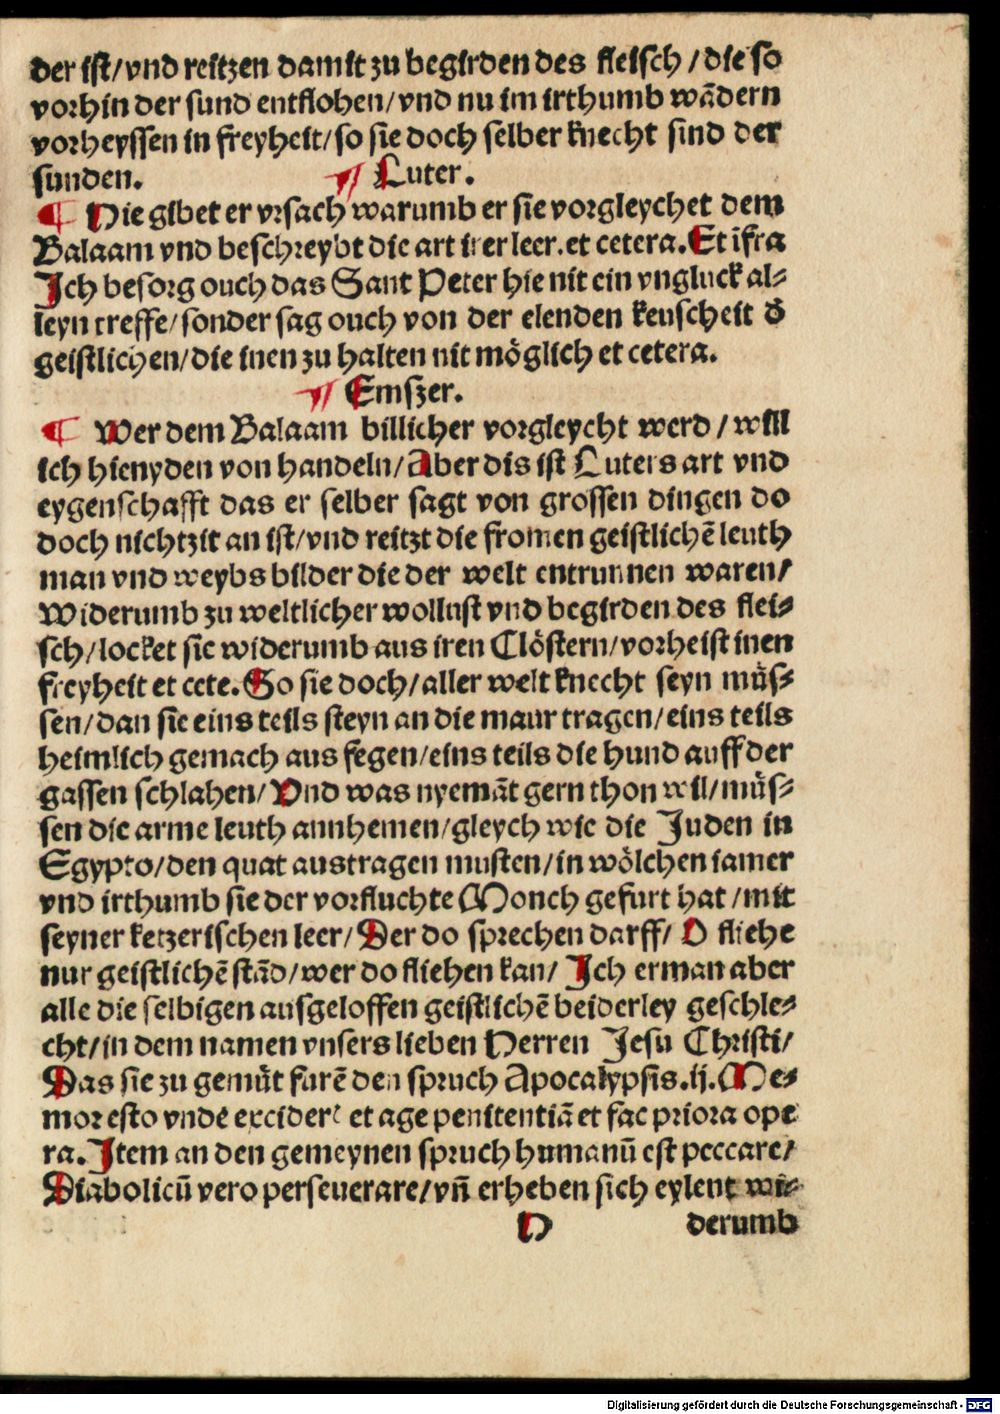 der ist/vnd reitzen damit zu begirden des fleisch/die so
vorhin der sund entflohen/vnd nu im irthumb wādern
vorheyssen in freyheit/so sie doch selber knecht sind der
sunden. ¶ Luter.
¶ Hie gibet er vrsach warumb er sie vorgleychet dem
Balaam vnd beschreybt die art irer leer.et cetera.Et īfra
Ich besorg ouch das Sant Peter hie nit ein vngluck al-
leyn treffe/sonder sag ouch von der elenden keuscheit d̄
geistlichen/die inen zu halten nit möglich et cetera.
¶ Emszer.
¶ Wer dem Balaam billicher vorgleycht werd/will
ich hienyden von handeln/Aber dis ist Luters art vnd
eygenschafft das er selber sagt von grossen dingen do
doch nichtzit an ist/vnd reitzt die fromen geistlichē leuth
man vnd weybs bilder die der welt entrunnen waren/
Widerumb zu weltlicher wollust vnd begirden des flei-
sch/locket sie widerumb aus iren Clöstern/vorheist inen
freyheit et cete.So sie doch/aller welt knecht seyn müs-
sen/dan sie eins teils steyn an die maur tragen/eins teils
heimlich gemach aus fegen/eins teils die hund auff der
gassen schlahen/Vnd was nyemāt gern thon wil/müs-
sen die arme leuth annhemen/gleych wie die Juden in
Egypto/den quat austragen musten/in wölchen iamer
vnd irthumb sie der vorfluchte Monch gefurt hat/mit
seyner ketzerischen leer/Der do sprechen darff/O fliehe
nur geistlichē stād/wer do fliehen kan/Ich erman aber
alle die selbigen ausgeloffen geistlichē beiderley geschle-
cht/in dem namen vnsers lieben Herren Jesu Christi/
Das sie zu gemüt furē den spruch Apocalypsis.ij.Me-
mor esto vnde excider̄ et age penitentiā et fac priora ope
ra.Item an den gemeynen spruch humanū est peccare/
Diabolicū vero perseuerare/vn̄ erheben sich eylent wi-
H derumb
Digitalisierung gefördert durch die Deutsche Forschungsgemeinschaft - DFG